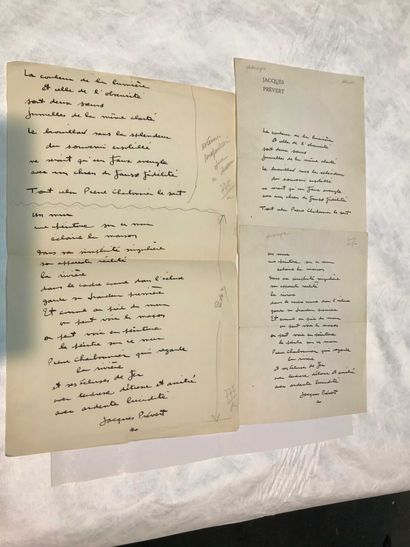 La couleur de la lumière
et celle de l'obscurité
sont deux sœurs
jumelles de la même clarté
Le brouillard sous la splendeur
du souvenir
ne serait qu'un faux aveugle
avec un chien de fausse fidélité
Tout cela Pierre Charbonnier le sait
Un mur
une peinture sur ce mur
éclaire la maison
dans sa simplicité singulière
son apparente réalité
la rivière
dans le cadre comme dans l'écluse
garde sa fraîcheur première
Et comme au pied du mur
on peut voir le maçon
on peut voir en peinture
le peintre sur ce mur
Pierre Charbonnier qui regarde
la rivière
et ses écluses de
avec tendresse détresse et amitié
avec ardente lucidité
Jacques Prévert
JACQUES
PRÉVERT
La couleur de la lumière
et celle de l'obscurité
sont deux sœurs
jumelles de la même clarté
Le brouillard sous la splendeur
du souvenir
ne serait qu'un faux aveugle
avec un chien de fausse fidélité
Tout cela Pierre Charbonnier le sait
Un mur
une peinture sur ce mur
éclaire la maison
dans sa simplicité singulière
son apparente réalité
la rivière
dans le cadre comme dans l'écluse
garde sa fraîcheur première
Et comme au pied du mur
on peut voir le maçon
on peut voir en peinture
le peintre sur ce mur
Pierre Charbonnier qui regarde
la rivière
et ses écluses de
avec tendresse détresse et amitié
avec ardente lucidité
Jacques Prévert